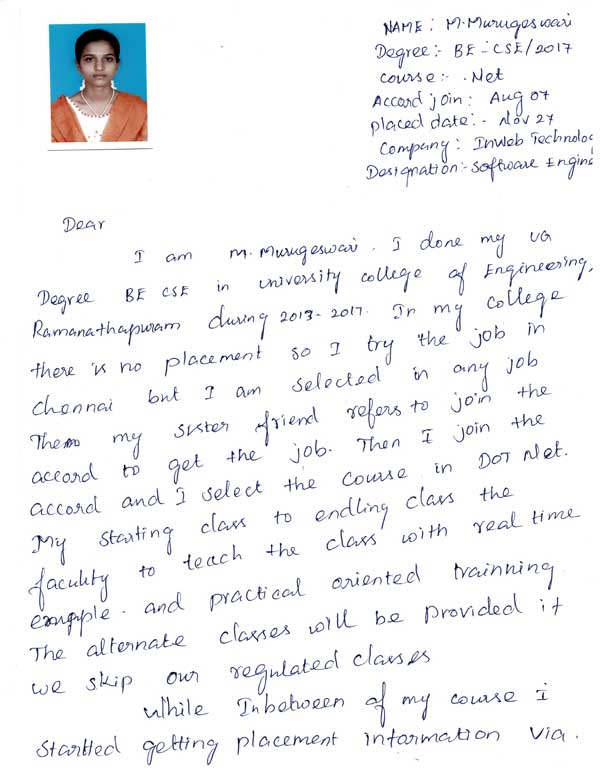 NAME : M.Murugeswari
Degree:- BE-CSE/2017
Course:- .Net
Accord join: Aug 07
Placed date:- Nov 27
Company : Inweb Technolo
Designation:- Software Engin
Dear
I am M.Murugeswari. I done my UG
Degree BE CSE in university college of Engineering,
Ramanathapuram during 2013-2017. In my college
there is no placement so I try the job in
chennai but I am selected in any job
Then my sister friend refers to join the
accord to get the job. Then I join the
accord and I select the course in DOT Net.
My starting class to endling class the
faculity to teach the class with real time
example. and practical oriented trainning
The alternate classes will be provided if
we skip our regulated classes
While Inbetween of my course i
Startled getting placement information via.